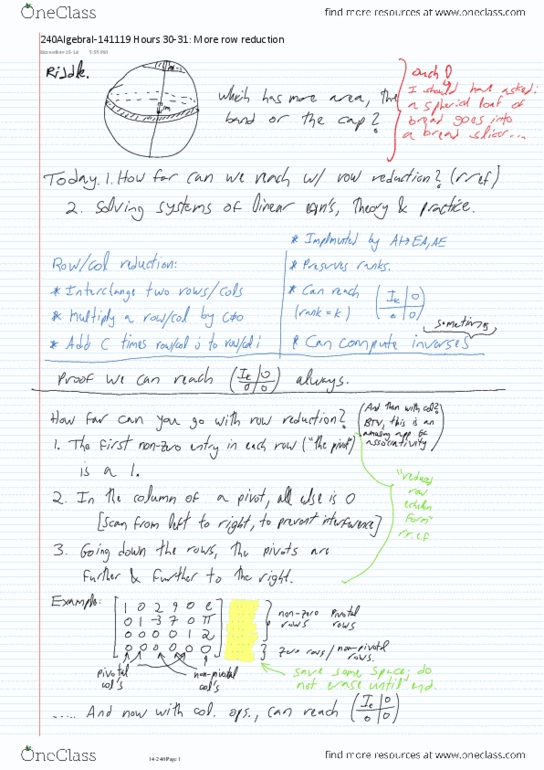 OneClass
find more resources at www.oneclass.com
240AlgebraI-141119 Hours 30-31: More row reduction
Riddle.
1m
1m
Which has more area, the
band or the cap?
ouch!
I should have asked:
a spherical loaf of
bread goes into
a bread slicer...
Today. 1. How far can we reach w/ row reduction? (rref)
2. Solving systems of linear eqn's, Theory & practice.
Row/col reduction:
* Interchange two rows/cols
* Multiply a row/col by c≠0
* Add C times row/col j to row/col i
* Implemented by A→EA, AE
* Preserves ranks.
* Can reach (Ik|0 / 0|0)
(rank = k)
sometimes
* Can compute inverses
Proof we can reach (Ik|0 / 0|0) always.
How far can you go with row reduction?
(And then with col?
BTW, this is an
amazing app of
associativity)
1. The first non-zero entry in each row ("the pivot")
is a 1.
2. In the column of a pivot, all else is 0
[scan from left to right, to prevent interference]
3. Going down the rows, the pivots are
further & further to the right.
"reduced
row
echelon
form"
rref
Example:
1 0 2 9 0 e
0 1 -3 7 0 π
0 0 0 0 1 2
0 0 0 0 0 0
non-zero rows
Pivotal rows
zero rows / non-pivotal
rows.
pivotal
col's
non-pivotal
col's
save some space; do
not erase until end.
..... And now with col. ops., can reach (Ik|0 / 0|0)
14-240 Page 1
OneClass
find more resources at www.oneclass.com